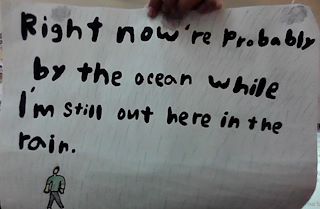 Right now're probably
by the ocean while
I'm still out here in the
rain.